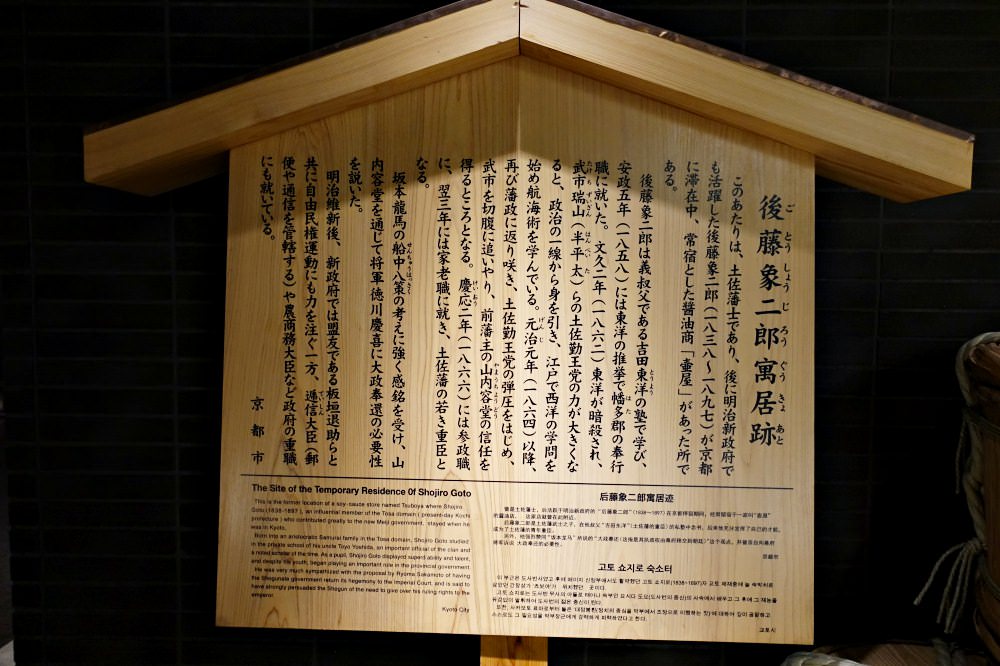 後藤象二郎寓居跡
ごとうしょうじろうぐうきょあと
このあたりは、土佐藩士であり、後に明治新政府で
も活躍した後藤象二郎（一八三八〜一八九七）が京都
に滞在中、常宿とした醤油商「壷屋」があった所で
ある。
後藤象二郎は義叔父である吉田東洋の塾で学び、
とうよう
安政五年（一八五八）には東洋の推挙で幡多郡の奉行
はた
職に就いた。文久二年（一八六二）東洋が暗殺され、
武市瑞山（半平太）らの土佐勤王党の力が大きくな
たけちずいざん はんぺいた
ると、政治の一線から身を引き、江戸で西洋の学問を
始め航海術を学んでいる。元治元年（一八六四）以降、
げんじ
再び藩政に返り咲き、土佐勤王党の弾圧をはじめ、
武市を切腹に追いやり、前藩主の山内容堂の信任を
やまうちようどう
得るところとなる。慶応二年（一八六六）には参政職
けいおう
に、翌三年には家老職に就き、土佐藩の若き重臣と
なる。
坂本龍馬の船中八策の考えに強く感銘を受け、山
せんちゅうはっさく
内容堂を通じて将軍徳川慶喜に大政奉還の必要性
を説いた。
明治維新後、新政府では盟友である板垣退助らと
共に自由民権運動にも力を注ぐ一方、逓信大臣（郵
ていしん
便や通信を管轄する）や農商務大臣など政府の重職
にも就いている。
京都市
The Site of the Temporary Residence Of Shojiro Goto
This is the former location of a soy-cause store named Tsuboya where Shojiro
Goto (1838-1897), an influential member of the Tosa domain (present-day Kochi
prefecture) who contributed greatly to the new Meiji government, stayed when he
was in Kyoto.
Born into an aristocratic Samurai family in the Tosa domain, Shojiro Goto studied
in the private school of his uncle Toyo Yoshida, an important official of the clan and
a noted scholar of the time. As a pupil, Shojiro Goto displayed superb ability and talent,
and despite his youth, began playing an important role in the provincial government.
He was very much sympathized with the proposal by Ryoma Sakamoto of having
the Shogunate government return its hegemony to the Imperial Court, and is said to
have strongly persuaded the Shogun of the need to give over his ruling rights to the
emperor.
Kyoto City
后藤象二郎寓居迹
京都市
고토 쇼지로 숙소터
교토시